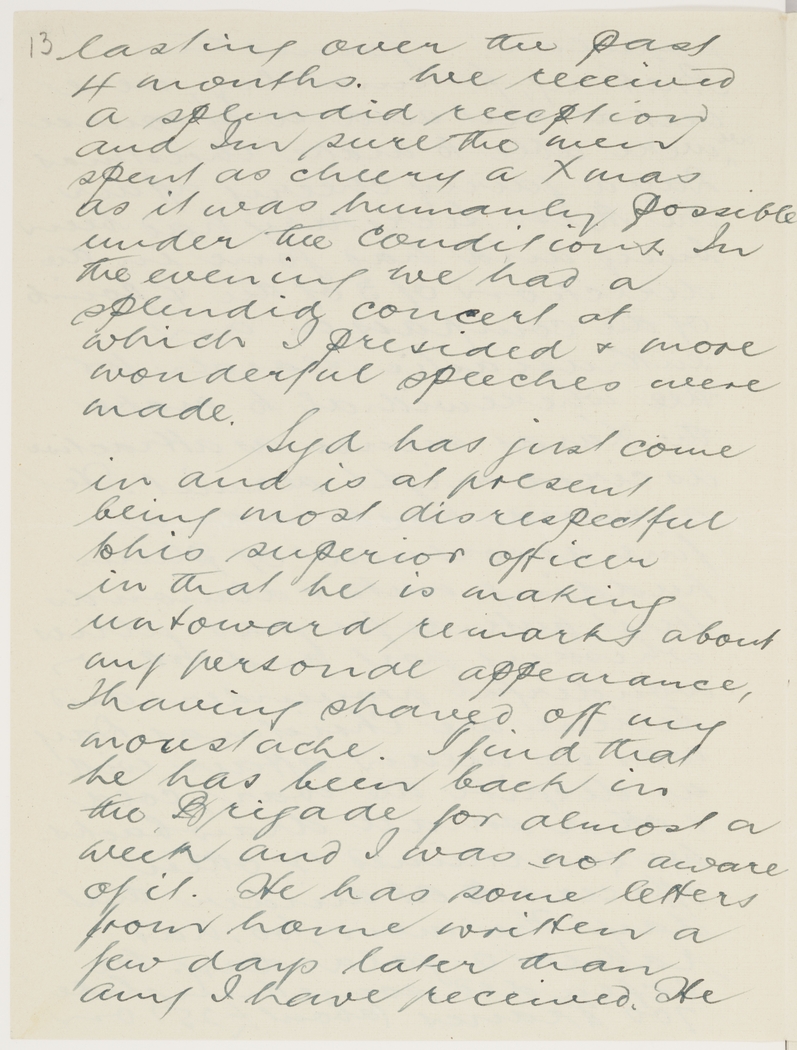 13 lasting over the past
4 months. We received
a splendid reception
and Im sure the men
spent as cheery a Xmas
as it was humanly possible
under the conditions. In
the evening we had a
splendid concert at
which I presided & more
wonderful speeches were
made.
Syd has just come
in and is at present
being most disrespectful
to his superior officer
in that he is making
untoward remarks about
my personal appearance,
I having shaved off my
moustache. I find that
he has been back in
the Brigade for almost a
week and I was not aware
of it. He has some letters
from home written a
few days later than
any I have received. He